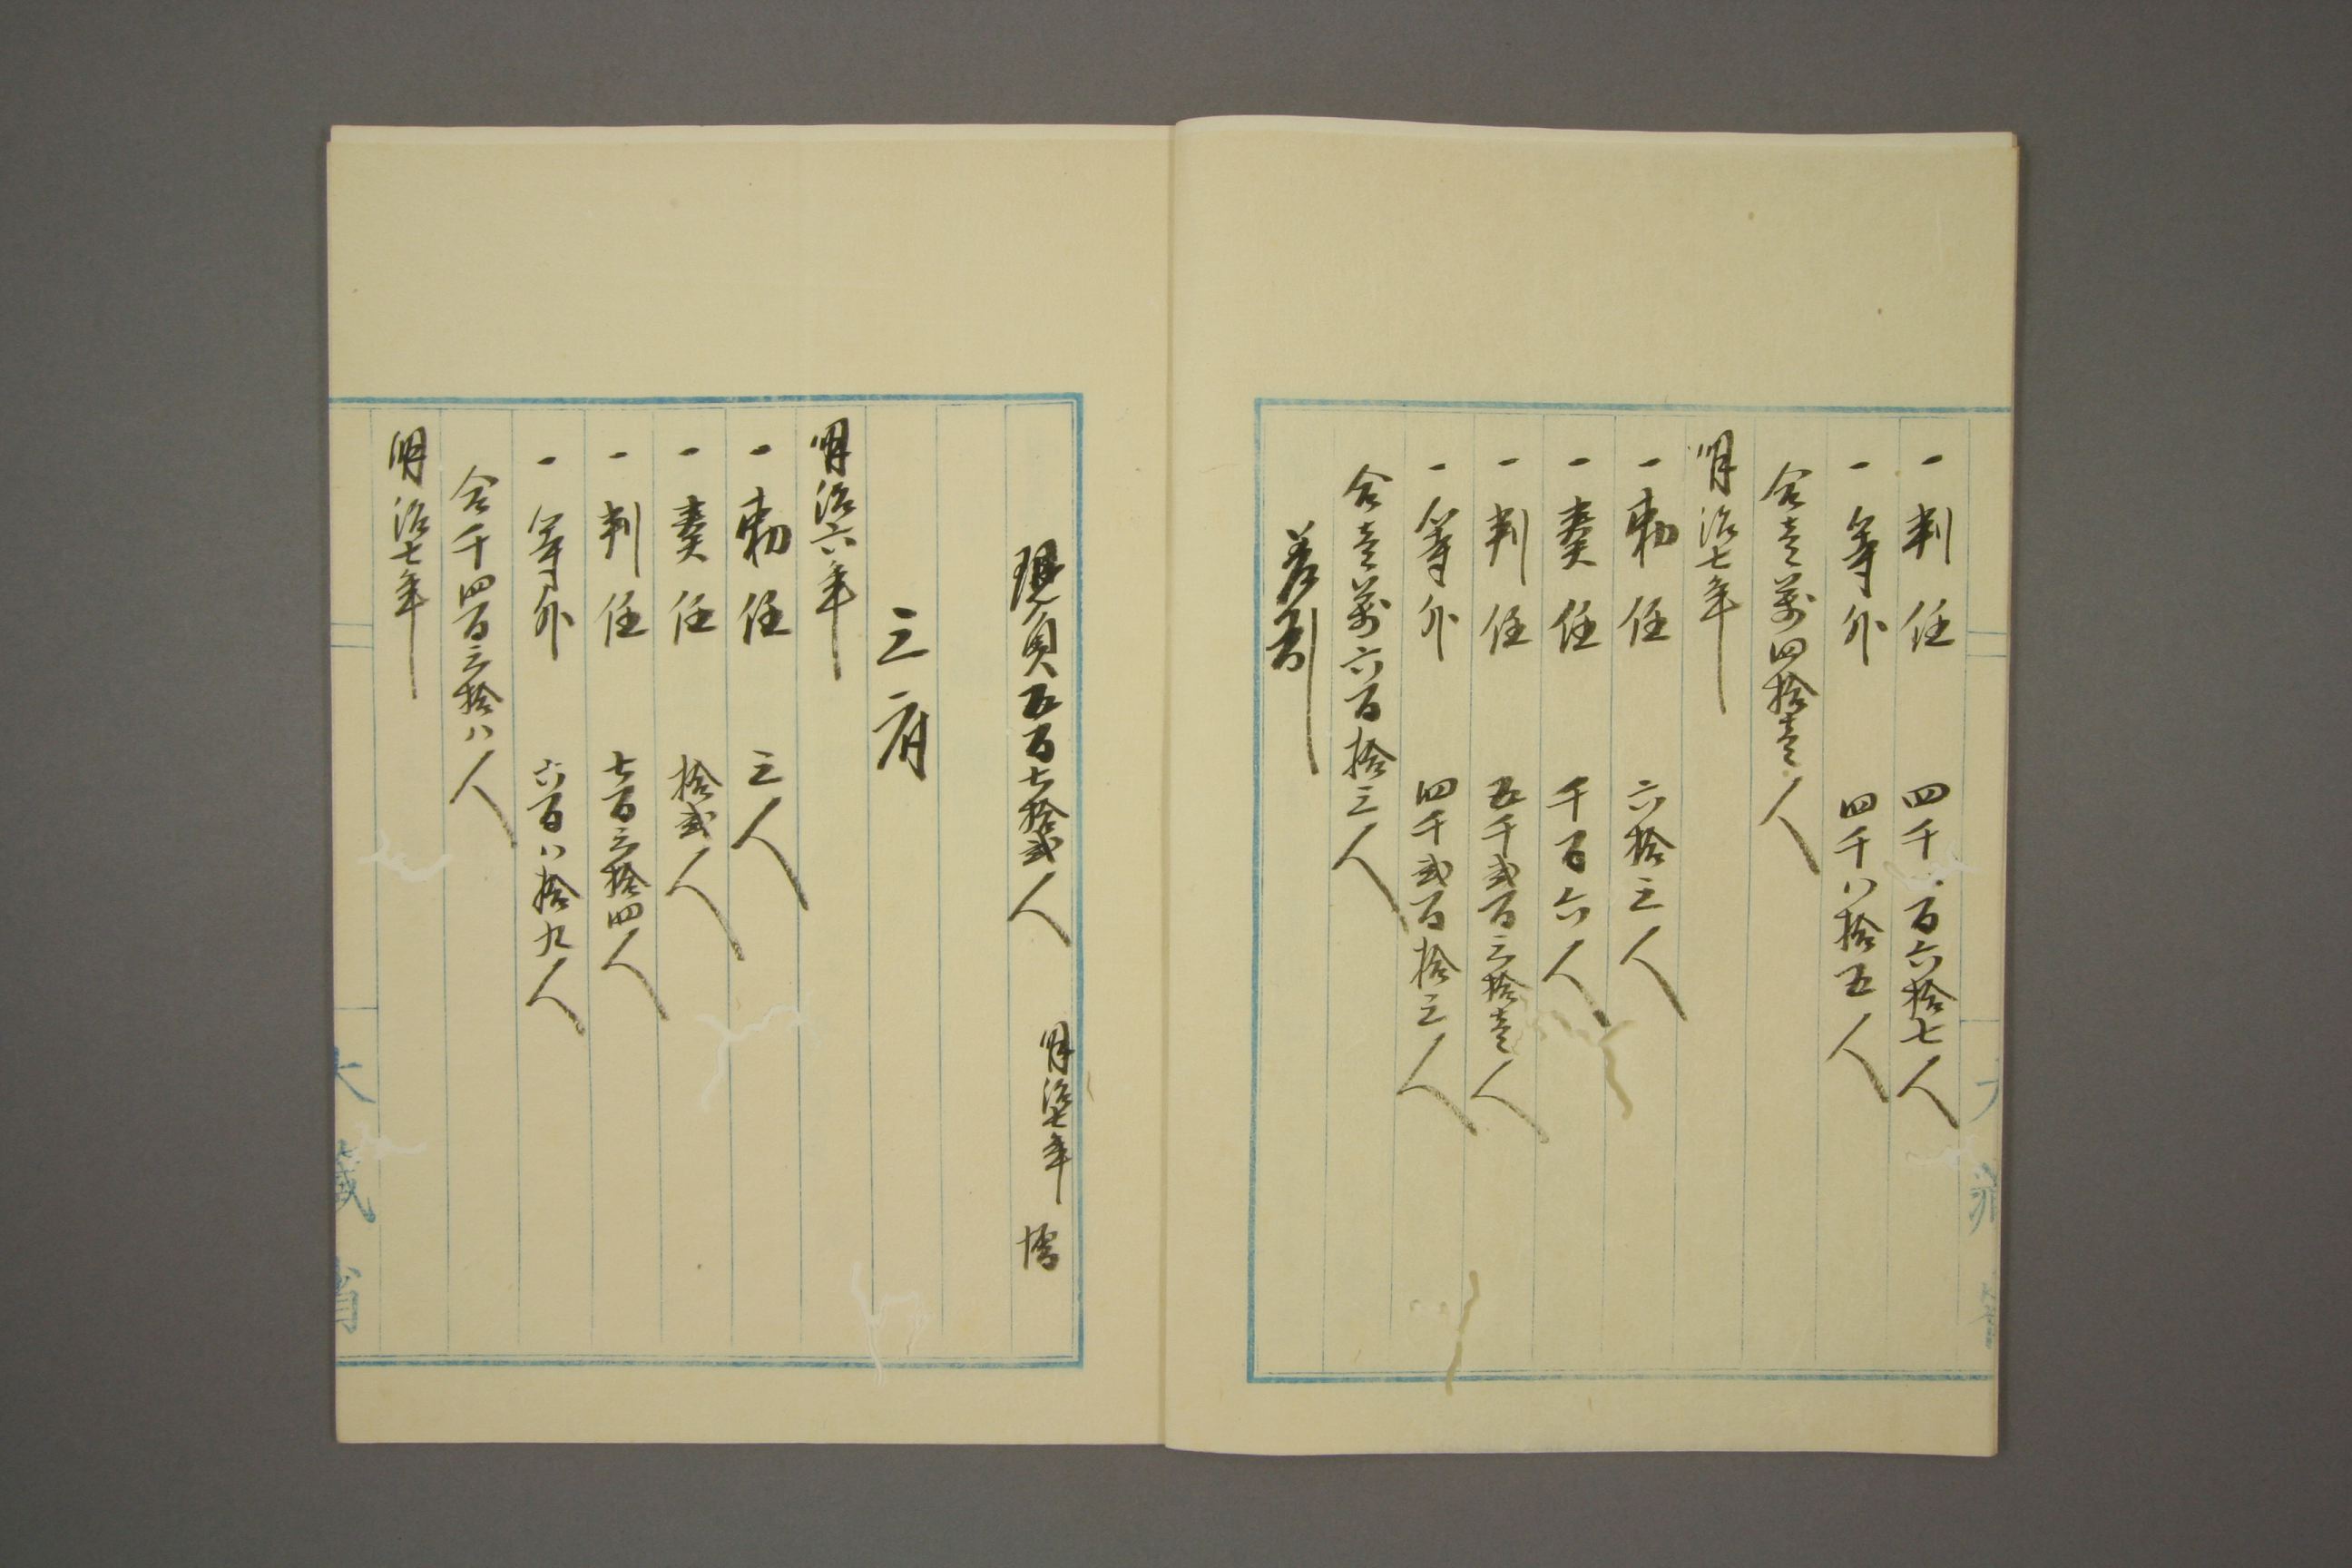 一判任 四千八百六拾七人
一等外 四千八拾五人
合壱萬四拾壱人
明治七年
一勅任 六拾三人
一奏任 千百六人
一判任 五千弐百三拾壱人
一等外 四千弐百拾三人
合壱萬六百拾三人
差引
現員五百七拾弐人 明治七年 増
三府
明治六年
一勅任 三人
一奏任 拾弐人
一判任 七百三拾四人
一等外 六百八拾九人
合千四百三拾八人
明治七年
大藏省